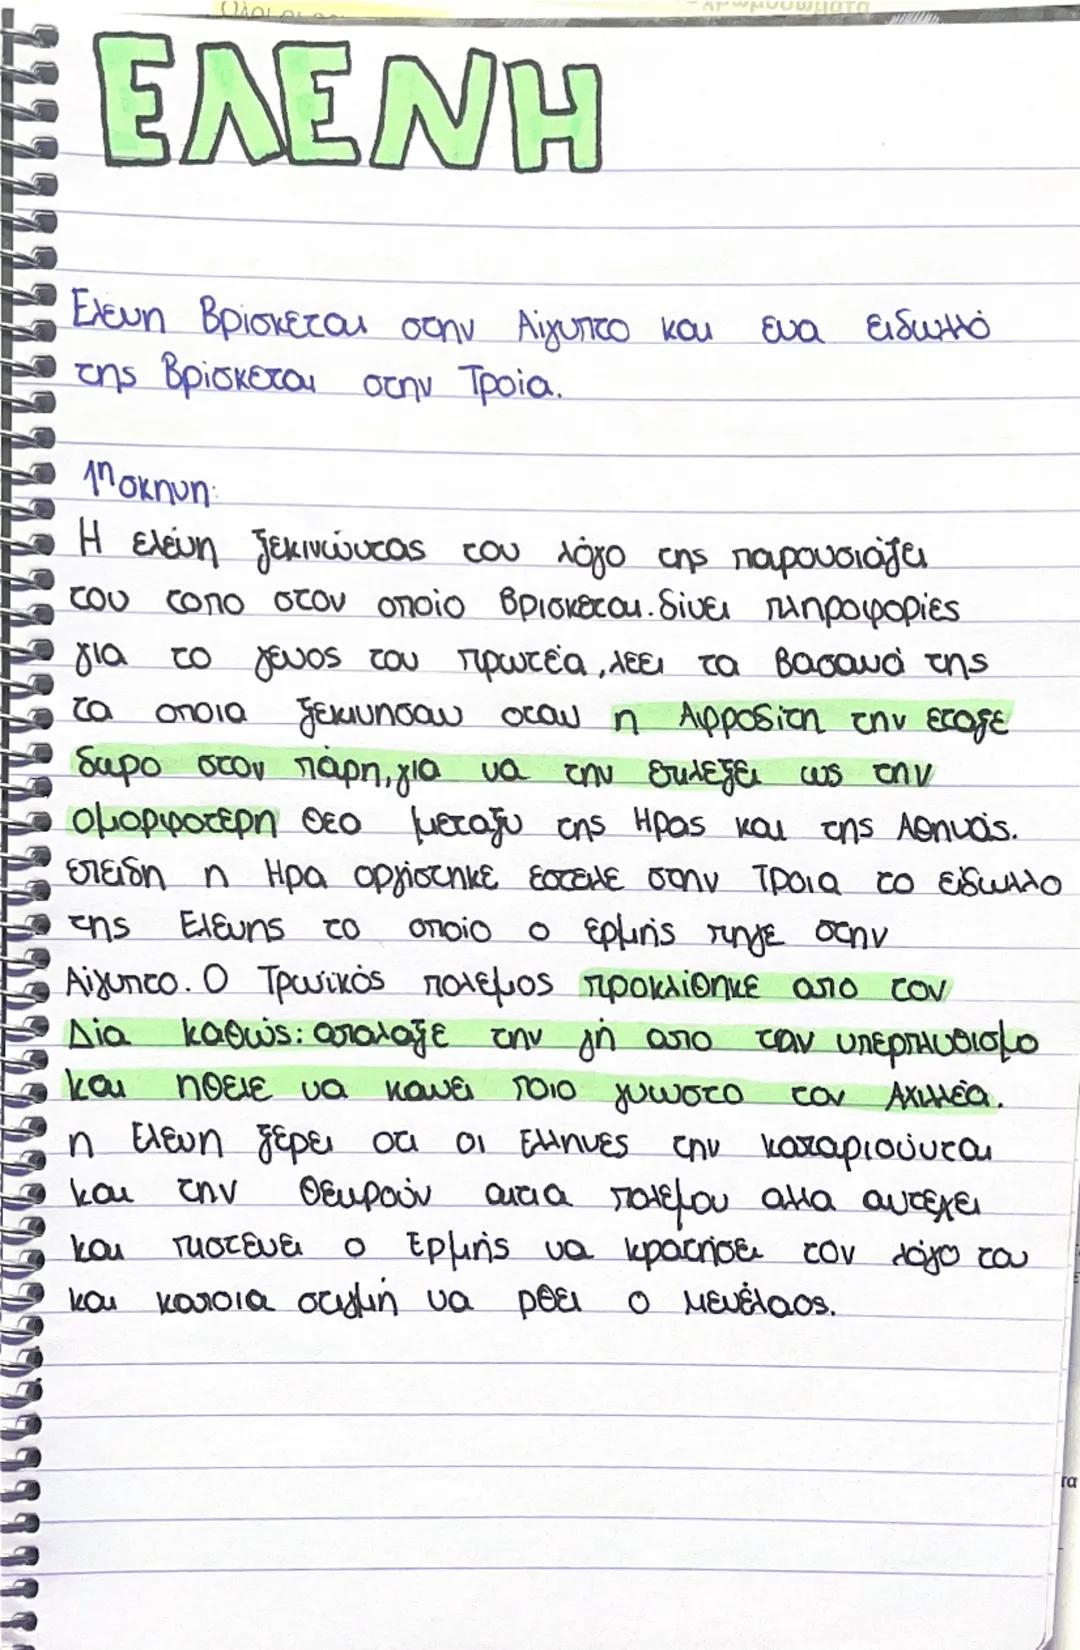 ΕΛΕΝΗ
Ελενη Βρίσκεται στην Αίγυπτο και ενα ειδωλλό
της Βρίσκεται στην Τροία.
1η σκηνη:
Η ελένη ξεκινώντας τον λόγο της παρουσιάζει
τον τοπο στον οποίο βρισκεται. δίνει πληροφορίες
για το γενος του πρωτέα, λέει τα βασανά της
τα οποια ξεκινησαν οταν η Αφροδίτη την εταξε
δωρο στον πάρη, για να την επιλέξει ως την
ομορφοτερη θεο μεταξυ της Ηρας και της Αθηνάς.
επειδη η Ηρα οργίστηκε εστειλε στην Τροια το είδωλλο
της Ελενης το οποίο ο ερμής πηγε στην
Αίγυπτο. Ο Τρωϊκός πολεμος προκλίθηκε απο τον
Δία καθώς: απαλαξε την γή απο τον υπερπλυθισμο
και ηθελε να κανει ποιο γνωστο τον Αχιλλέα.
η Ελενη ξέρει οτι οι Ελληνες την καταριούνται
και την θεωρούν αιτια πολέμου αλλα αντέχει
και πιστευει ο Ερμής να κρατησει τον λόγο του
και καποια στιγμή να ρθει ο Μενέλαος.